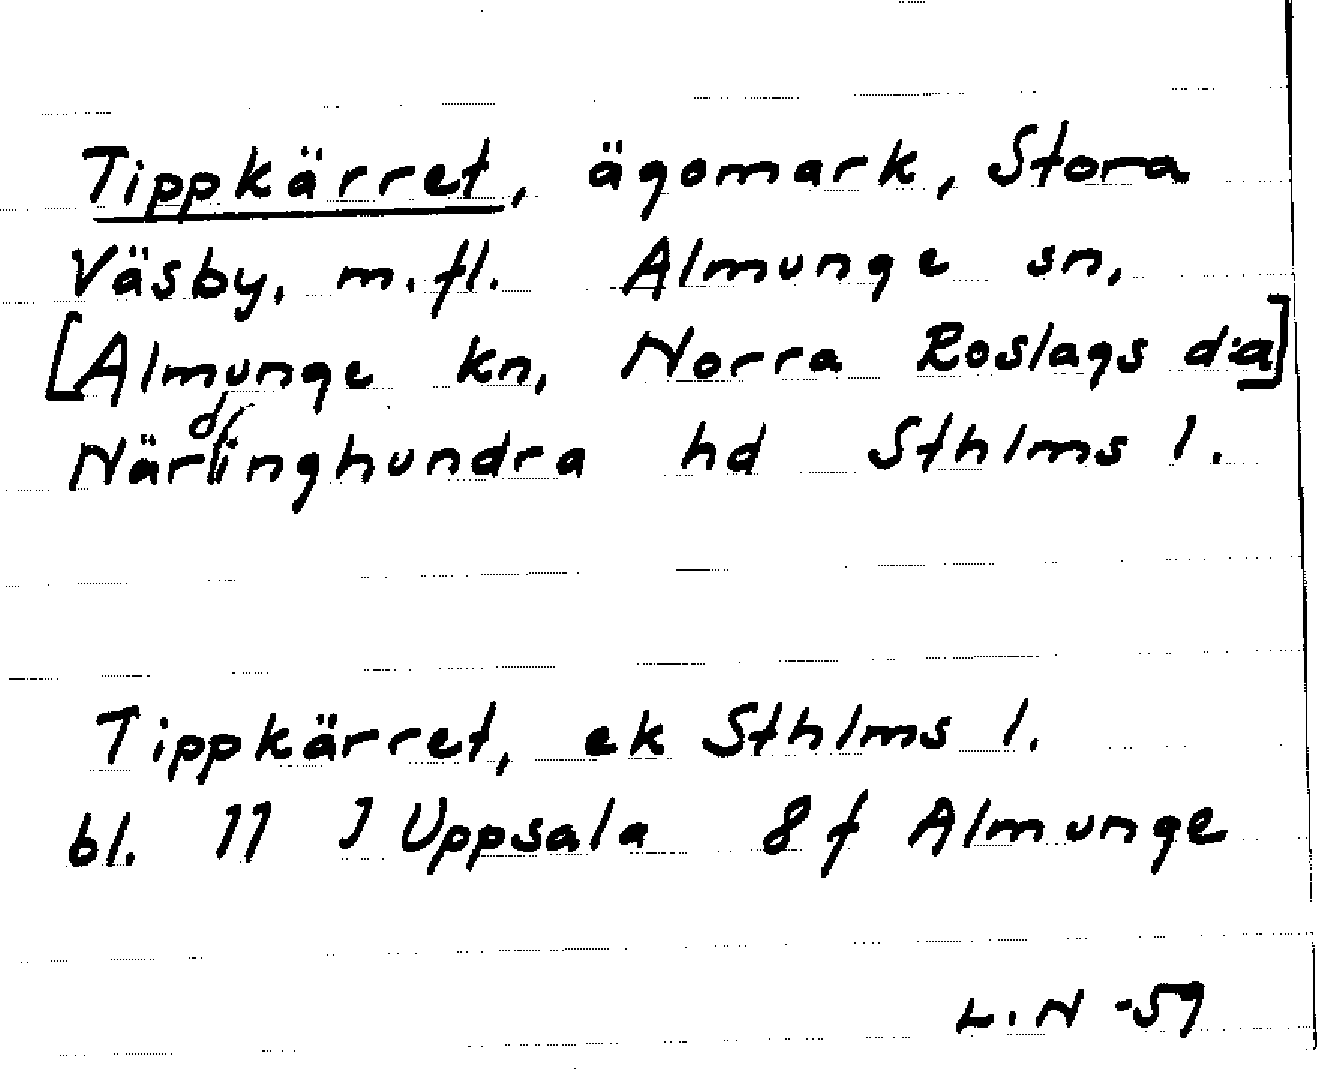 Tippkärret, ägomark, Stora
Väsby, m.fl. Almunge sn,
[Almunge kn, Norra Roslags d:a]
Närdinghundra hd Sthlms l.
Tippkärret, ek Sthlms l.
bl. 11 J Uppsala 8 f Almunge
L.N -59